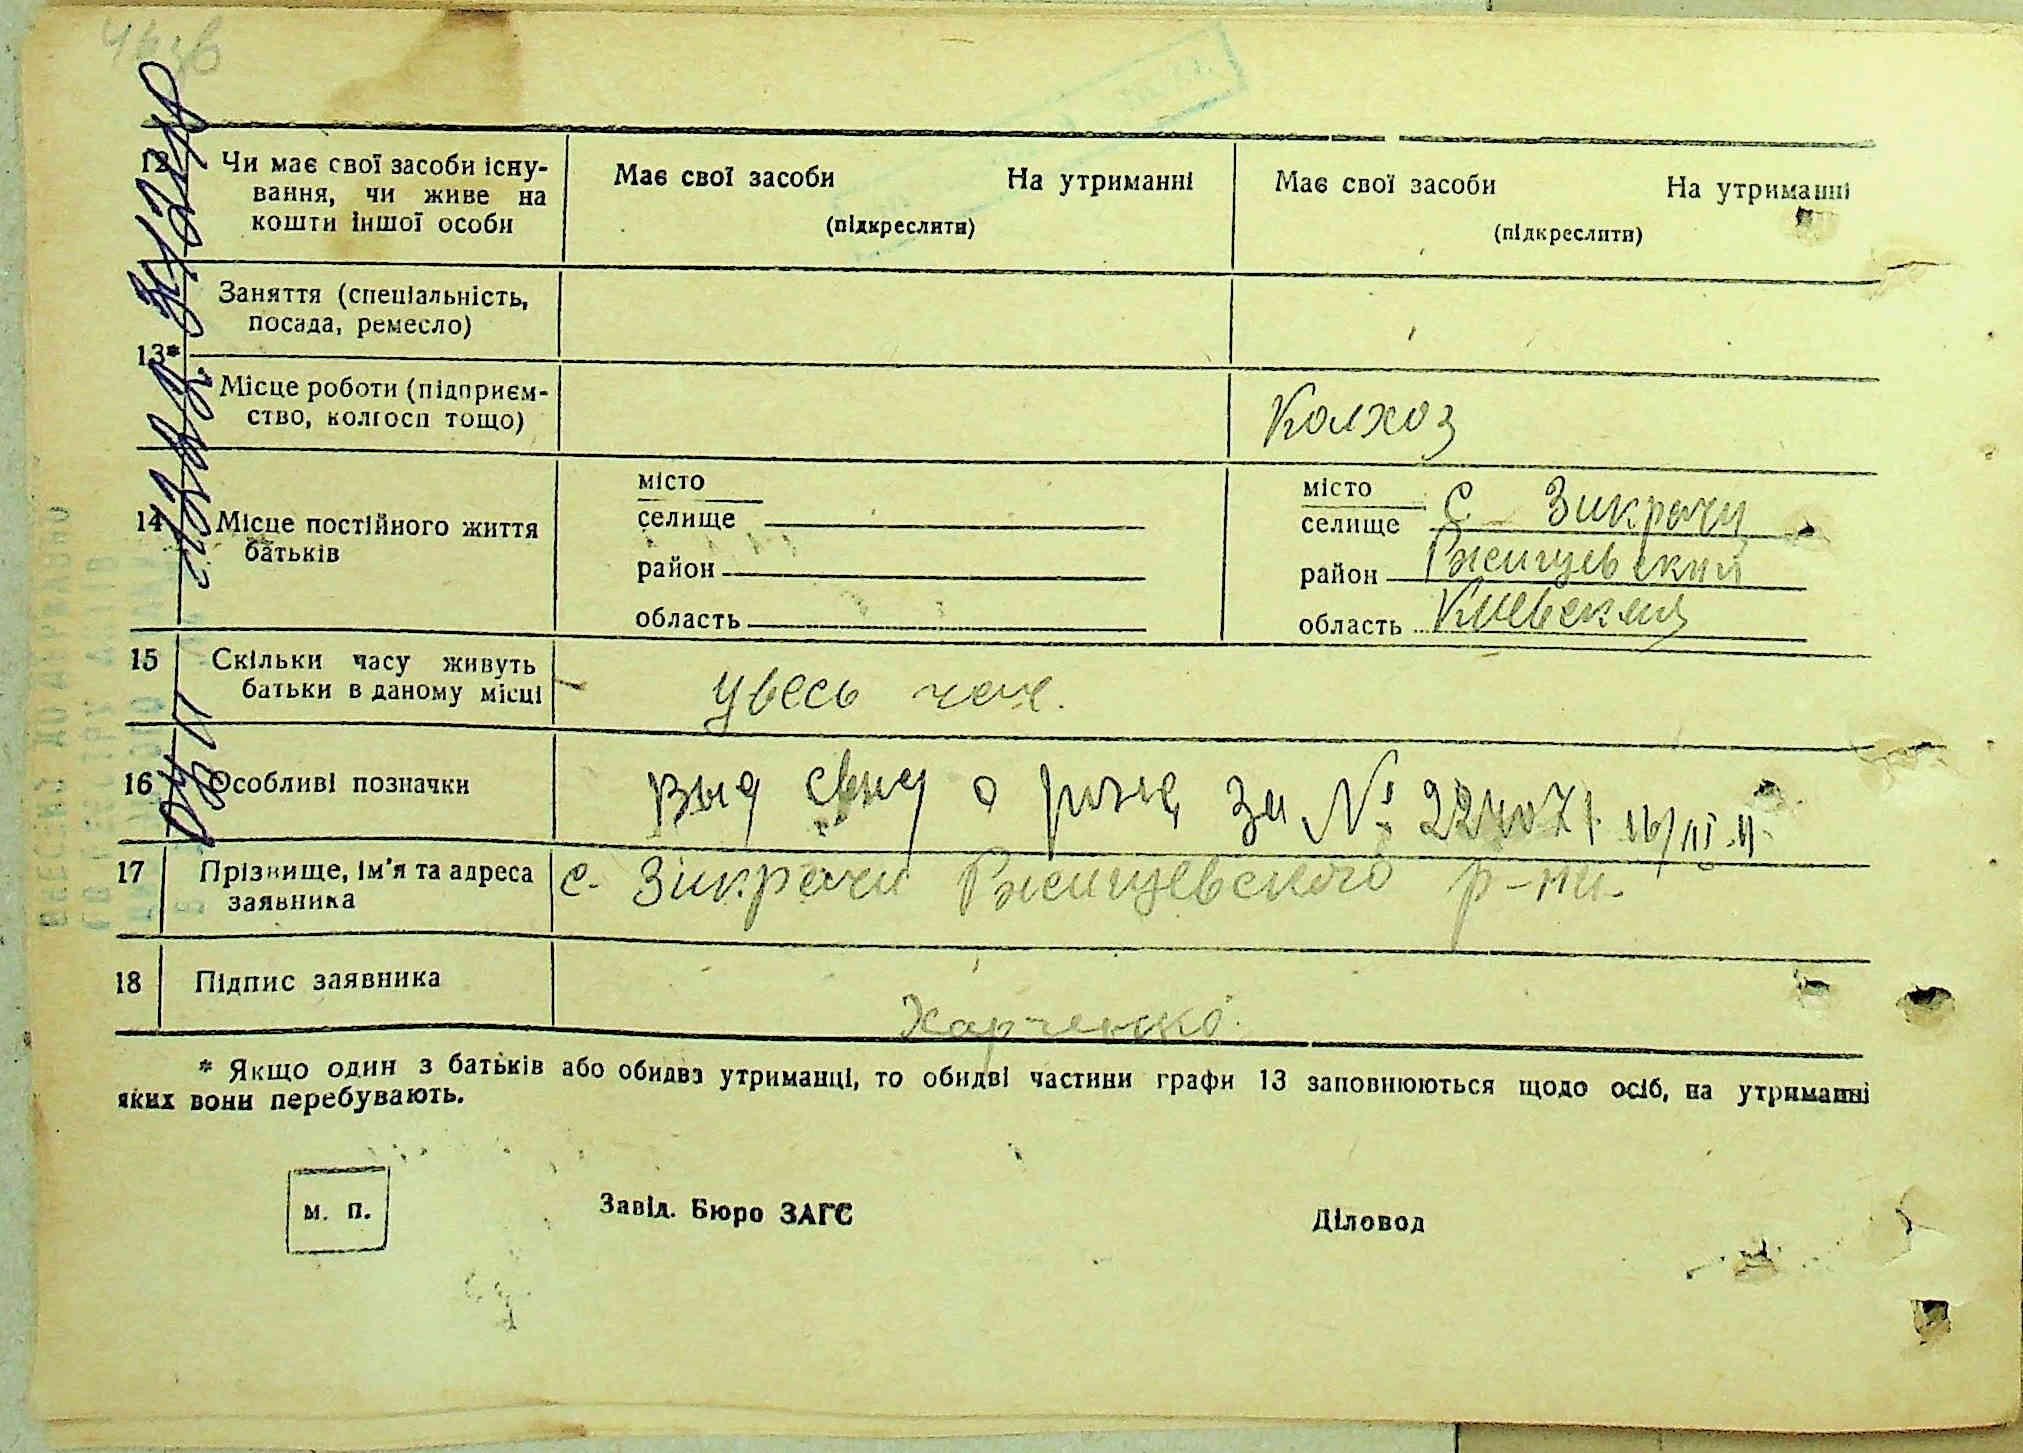 12 Чи має свої засоби існу-
вання, чи живе на
кошти іншої особи
Має свої засоби На утриманні
(підкреслити)
Має свої засоби На утриманні
(підкреслити)
13*
Заняття (спеціальність,
посада, ремесло)
Місце роботи (підприєм-
ство, колгосп тощо)
Колхоз
14 Місце постійного життя
батьків
місто
селище
район
область
місто
селище С Зикрачи
район Ржищевский
область Киевская
15 Скільки часу живуть
батьки в даному місці
увесь час.
16 Особливі позначки
Выд о за №
17 Прізвище, ім'я та адреса
заявника
с. Зикрачи Ржищевского р-на
18 Підпис заявника
Харченко
* Якщо один з батьків або обидва утриманці, то обидві частини графи 13 заповнюються щодо осіб, на утриманні
яких вони перебувають.
м. п.
Завід. Бюро ЗАГС
Діловод